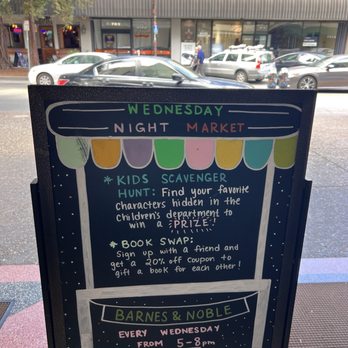 WEDNESDAY
NIGHT MARKET
* KIDS SCAVENGER
HUNT: Find your favorite
characters hidden in the
children's department to
win a PRIZE!
* BOOK SWAP:
Sign up with a friend and
get a 20% off coupon to
gift a book for each other!
BARNES & NOBLE
EVERY WEDNESDAY
FROM 5-8pm